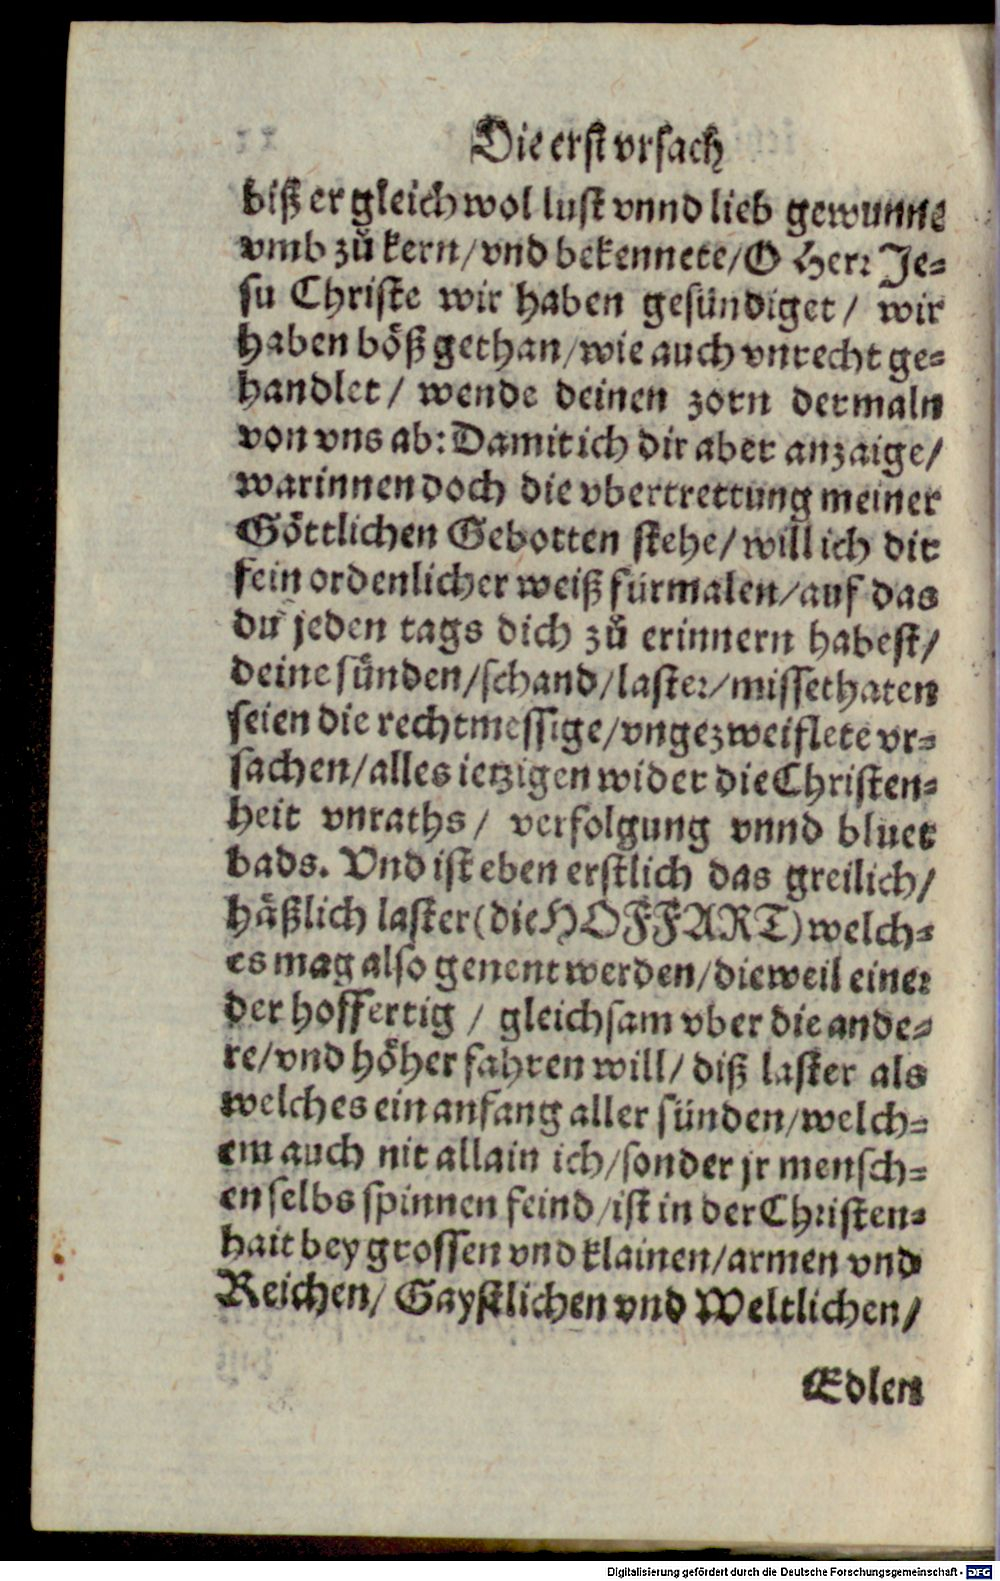 Die erst vrsach
biß er gleich wol lust vnnd lieb gewunne
vmb zů kern/vnd bekennete/O Herr Je=
su Christe wir haben gesündiget/ wir
haben böß gethan/wie auch vnrecht ge=
handlet/ wende deinen zorn dermaln
von vns ab: Damit ich dir aber anzaige/
warinnen doch die vbertrettung meiner
Göttlichen Gebotten stehe/ will ich dir
fein ordenlicher weiß fürmalen/auf das
du jeden tags dich zů erinnern habest/
deine sünden/schand/laster/missethaten
seien die rechtmessige/vngezweiflete vr=
sachen/alles ietzigen wider die Christen=
heit vnraths/ verfolgung vnnd bluet
bads. Vnd ist eben erstlich das greilich/
häßlich laster(die HOFFART) welch=
es mag also genent werden/dieweil einer
der hoffertig / gleichsam vber die ande=
re/vnd höher fahren will/ diß laster als
welches ein anfang aller sünden/welch=
em auch nit allain ich/sonder jr mensch=
en selbs spinnen feind/ist in der Christen=
hait bey grossen vnd klainen/armen vnd
Reichen/ Gaystlichen vnd Weltlichen/
Edlen
Digitalisierung gefördert durch die Deutsche Forschungsgemeinschaft - DFG